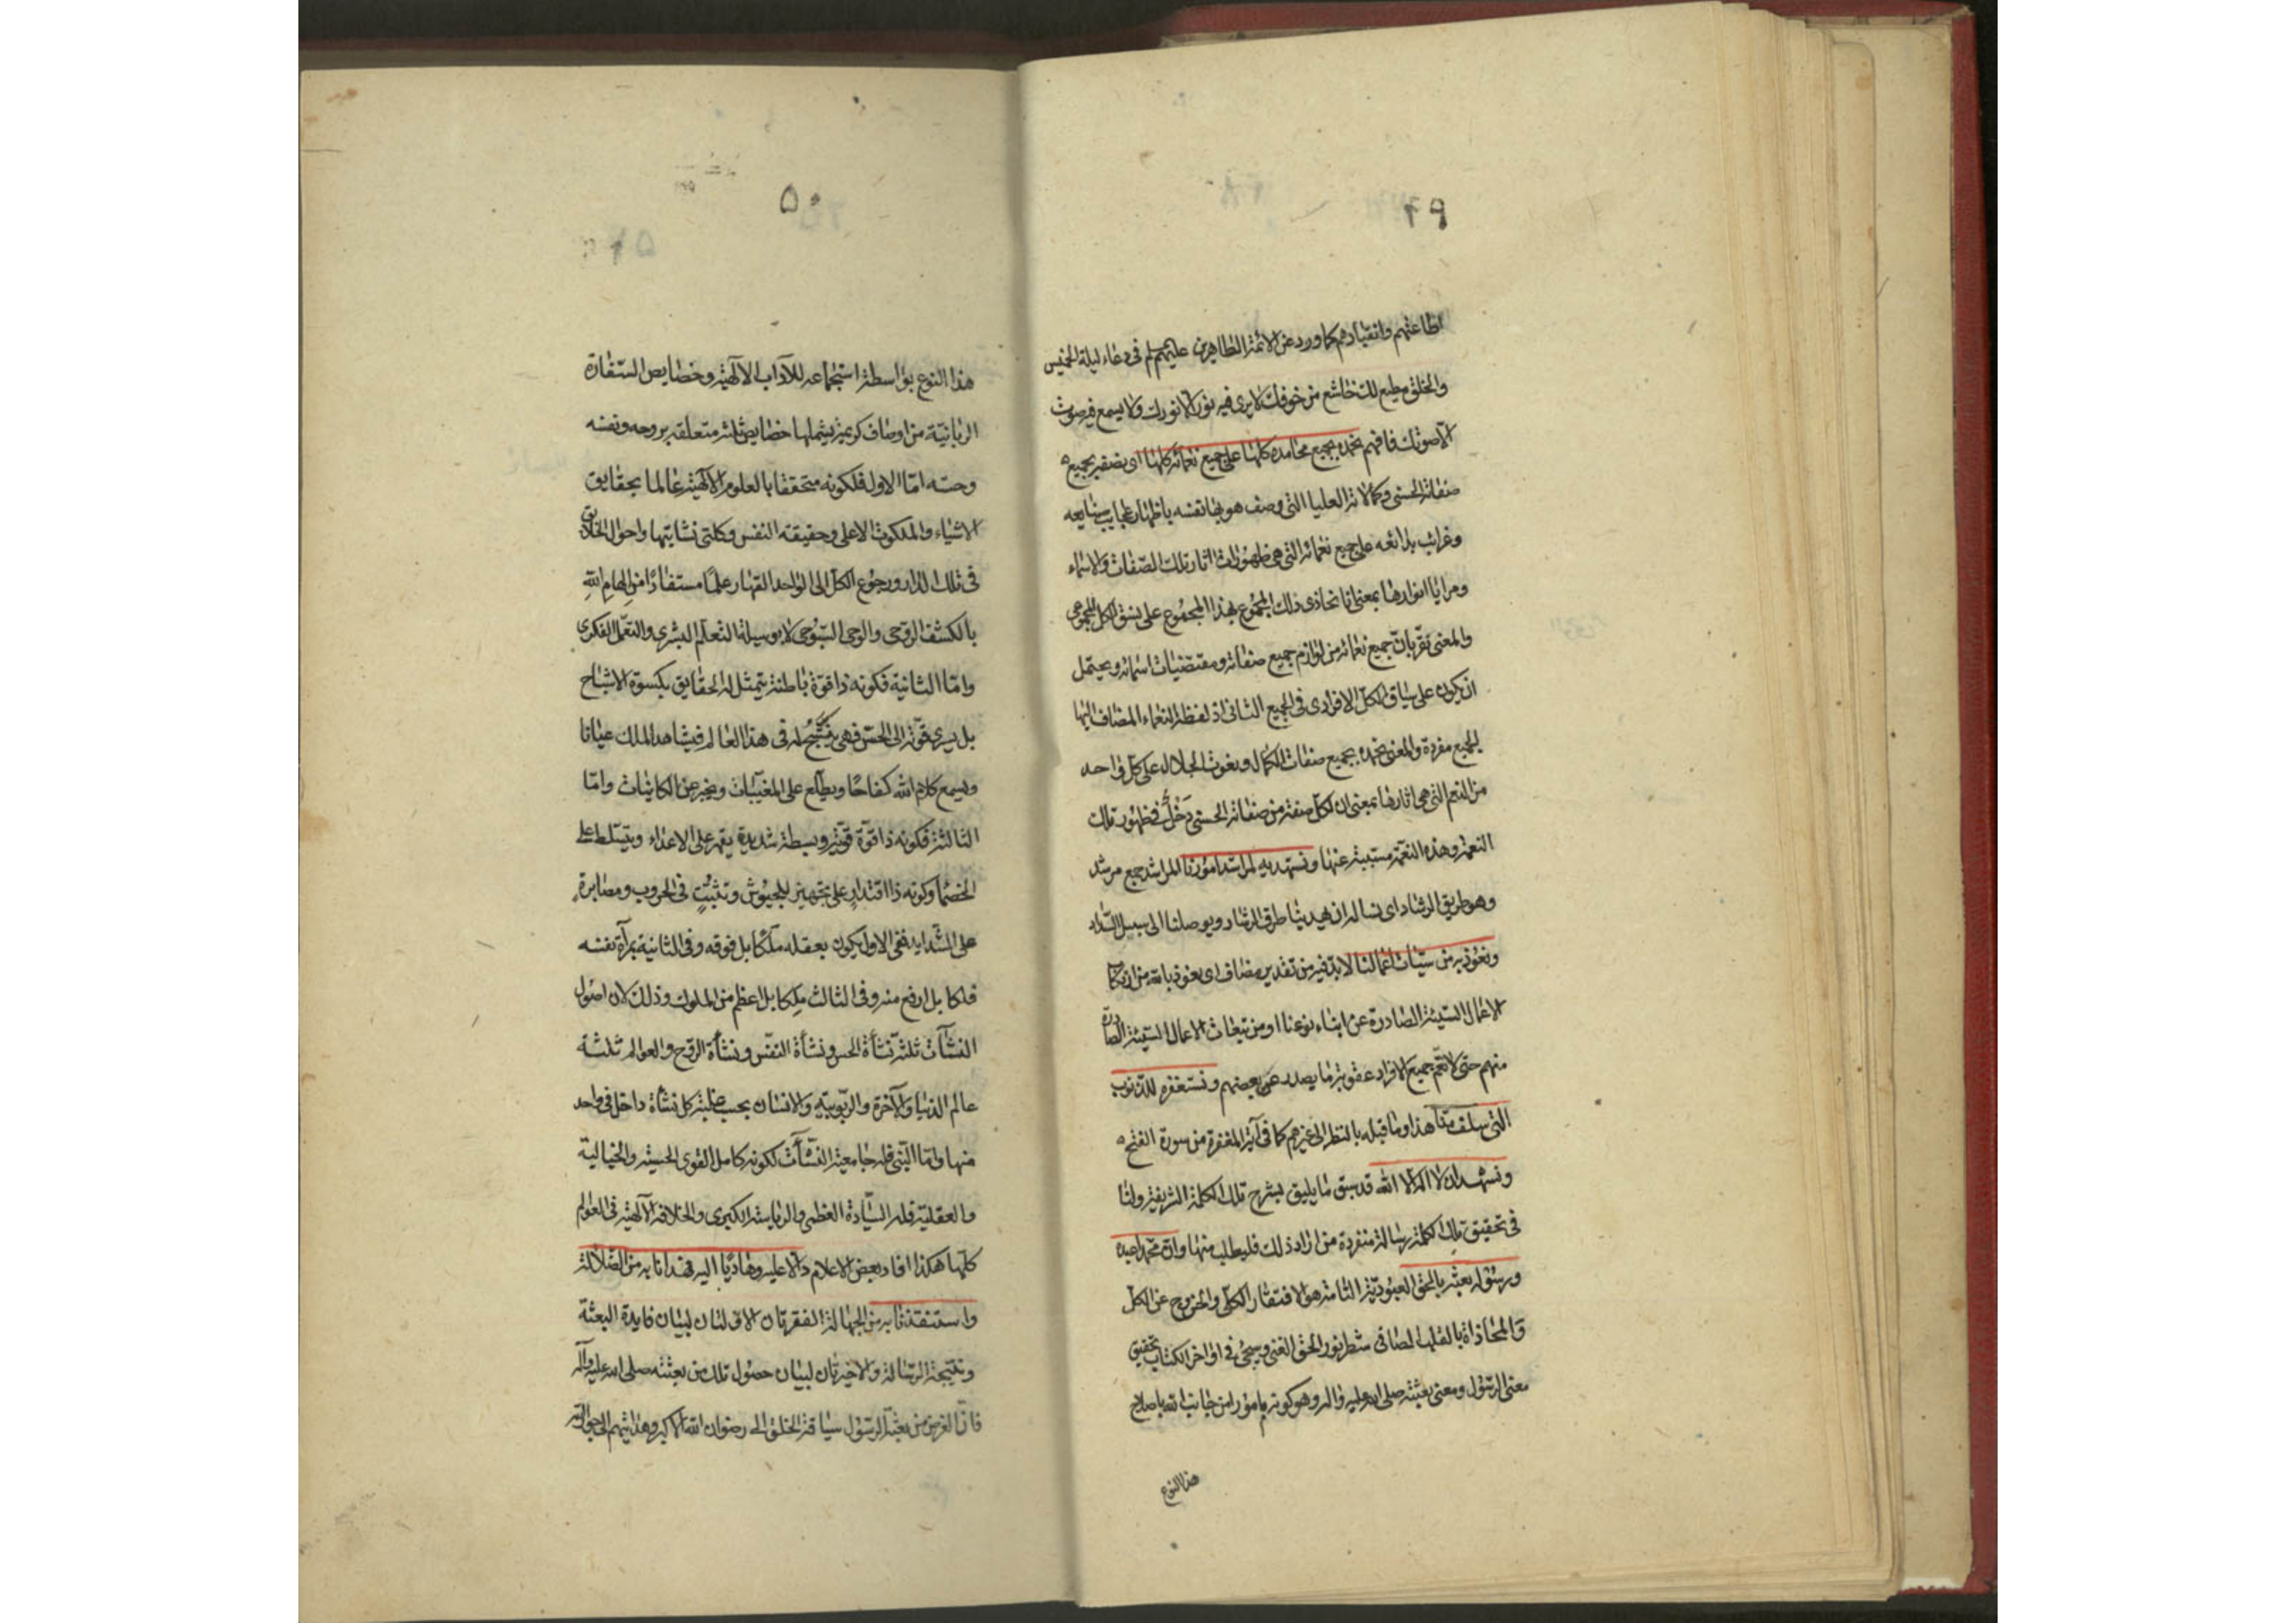 ٤٩
اطاعتهم وانقيادهم كما ورد عن الائمة الطاهرين عليهم في دعاء ليلة الخميس
والخلق مطيع لك خاشع من خوفك لا يرى فيه نور الا نورك ولا يسمع فيه صوت
الا صوتك فافهم نحمده بجميع محامده كلها على جميع نعمائه كلها اى نصفه بجميع
صفاته الحسنى وكمالاته العليا التى وصف هو بها نفسه باظهار عجايب صنايعه
وغرائب بدائعه على جميع نعمائه التى هى ظهورات اثار تلك الصفات والاسماء
ومرايا انوارها بمعنى انا نحاذى ذلك المجموع بهذا المجموع على نسق الكل المجموعى
والمعنى نقر بان جميع نعمائه من لوازم جميع صفاته ومقتضيات اسمائه ويحتمل
ان يكون على سياق الكل الافرادى فى الجميع الثانى اذ لفظة النعماء المضاف اليها
للجميع مفردة والمعنى نحمده بجميع صفات الكمال ونعوت الجلال له على كل واحد
من النعم التى هى اثارها بمعنى ان لكل صفة من صفاته الحسنى دخل فى ظهور تلك
النعمة وهذه النعمة مسببة عنها ونستهديه لمراشد امورنا المراشد جمع مرشد
وهو طريق الرشاد اى نساله ان يهدينا طرق الرشاد ويوصلنا الى سبيل السداد
ونعوذ به من سيئات اعمالنا لابد فيه من تقدير مضاف اى نعوذ بالله من ارتكاب
الاعمال السيئة الصادرة عن ابناء نوعنا او من تبعات الاعمال السيئة الصادرة
منهم حتى لا تعم جميع الافراد عقوبة ما يصدر عن بعضهم ونستغفره للذنوب
التى سلف منا هذا وما قبله بالنظر الى غيرهم كما فى آية المغفرة من سورة الفتح
ونشهد ان لا اله الا الله قد سبق ما يليق بشرح تلك الكلمة الشريفة ولنا
فى تحقيق تلك الكلمة رسالة منفردة من اراد ذلك فليطلب منها وان محمدا عبده
ورسوله بعثه بالحق العبودية التامة هو الافتقار الكلى والخروج عن الكل
والمحاذاة بالقلب الصافى شطر نور الحق الغنى وسيجئ فى اواخر الكتاب تحقيق
معنى الرسول ومعنى بعثته صلى الله عليه واله وهو كونه مامورا من جانب الله باصلاح
هذا النوع
٥٠
هذا النوع بواسطة استجماعه للآداب الآلهية وخصايص السفارة
الربانية من اوصاف كريمة يشملها خصايص ثلثة متعلقة بروحه ونفسه
وحسه اما الاول فلكونه متحققا بالعلوم الآلهية عالما بحقايق
الاشياء والملكوت الاعلى وحقيقته النفس وكلتى نشايتها واحوال الخلائق
فى تلك الدار ورجوع الكل الى الواحد القهار علما مستفادا من الهام الله
بالكشف الروحى والوحى السبوحى لا بوسيلة التعلم البشرى والتعمل الفكرى
واما الثانية فكونه ذا قوة باطنة يتمثل له الحقايق بكسوة الاشباح
بل يسرى قوته الى الحس فهى يتشبح له فى هذا العالم فيشاهد الملك عيانا
ويسمع كلام الله كفاحا ويطلع على المغيبات ويخبر عن الكاينات واما
الثالثة فكونه ذا قوة قوية وبسطة شديدة يقهر على الاعداء ويتسلط على
الخصماء وكونه ذا اقتدار على تجهيز الجيوش وتثبت فى الحروب ومصابرة
على الشدايد ففى الاول يكون بعقله ملكا بل فوقه وفى الثانية بمرآة نفسه
فلكا بل ارفع منه وفى الثالث ملكا بل اعظم من الملوك وذلك لان اصول
النشآت ثلثة نشأة الحس ونشأة النفس ونشأة الروح والعوالم ثلثة
عالم الدنيا والآخرة والربوبية والانسان بحسب غلبة كل نشأة داخل فى واحد
منها واما النبى فله جامعية النشآت لكونه كامل القوى الحسية والخيالية
والعقلية فله السيادة العظمى والرياسة الكبرى والخلافة الآلهية فى العوالم
كلها هكذا افاد بعض الاعلام دالا عليه وهاديا اليه فهدانا به من الضلالة
واستنقذنا به من الجهالة الفقرتان الاولتان لبيان فايدة البعثة
ونتيجة الرسالة والاخيرتان لبيان حصول تلك من بعثته صلى الله عليه وآله
فان الغرض من بعثة الرسول سياقة الخلق الى رضوان الله الاكبر وهدايتهم الى جوار الله